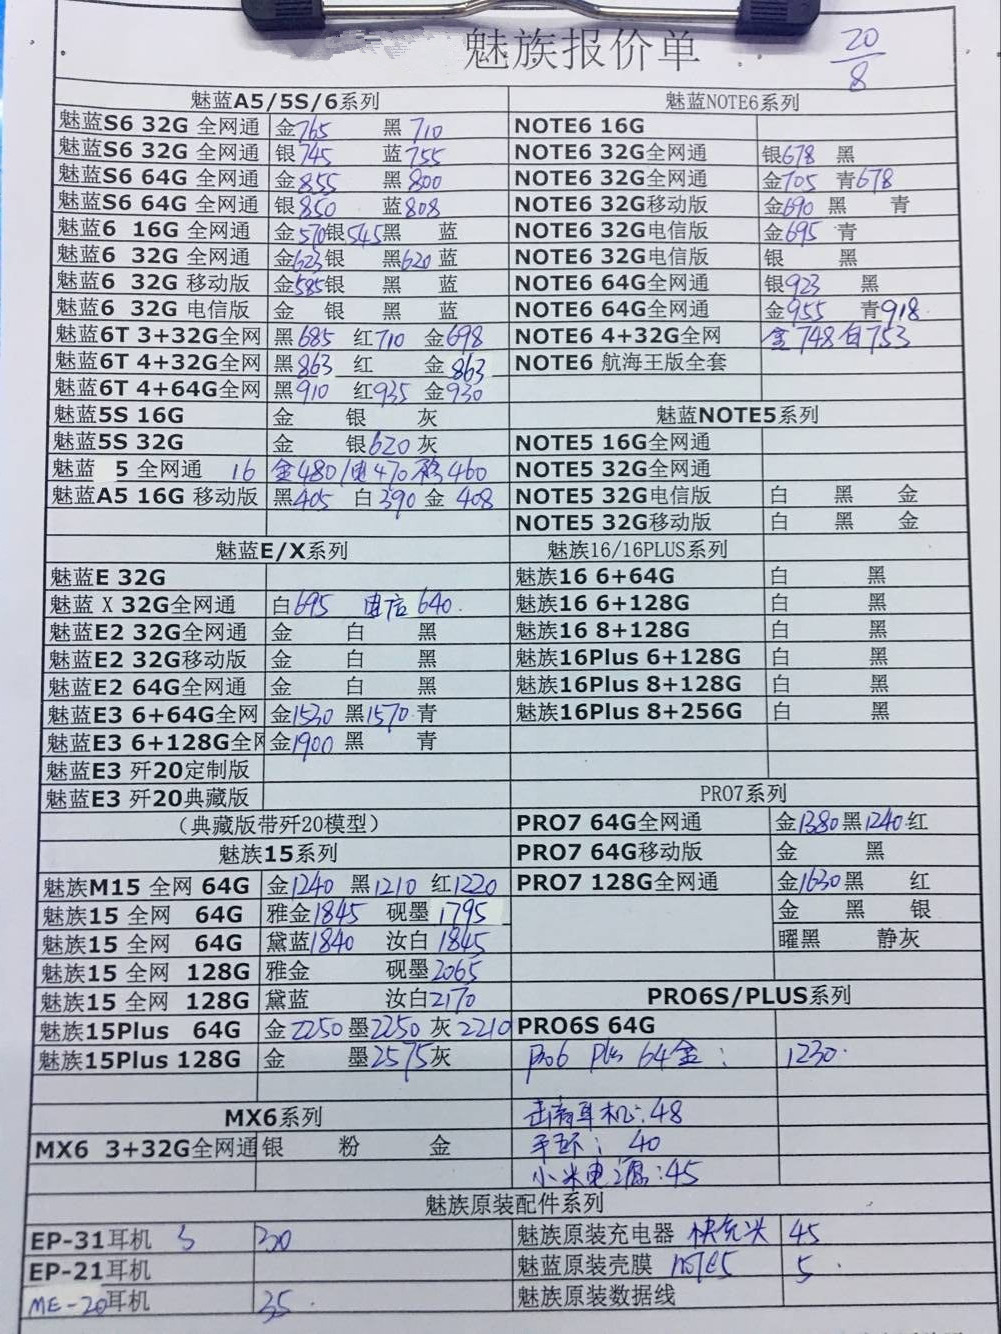 魅族报价单 20/8
魅蓝A5/5S/6系列
魅蓝S6 32G 全网通 金765 黑710
魅蓝S6 32G 全网通 银745 蓝755
魅蓝S6 64G 全网通 金855 黑800
魅蓝S6 64G 全网通 银850 蓝808
魅蓝6 16G 全网通 金570银545黑 蓝
魅蓝6 32G 全网通 金623银 黑620蓝
魅蓝6 32G 移动版 金585银 黑 蓝
魅蓝6 32G 电信版 金 银 黑 蓝
魅蓝6T 3+32G全网 黑685 红710 金698
魅蓝6T 4+32G全网 黑863 红 金863
魅蓝6T 4+64G全网 黑910 红935 金930
魅蓝5S 16G 金 银 灰
魅蓝5S 32G 金 银620灰
魅蓝 5 全网通 16 金480/电470移460
魅蓝A5 16G 移动版 黑405 白390 金 408
魅蓝E/X系列
魅蓝E 32G
魅蓝 X 32G全网通 白695 电信640.
魅蓝E2 32G全网通 金 白 黑
魅蓝E2 32G移动版 金 白 黑
魅蓝E2 64G全网通 金 白 黑
魅蓝E3 6+64G全网 金1530 黑1570 青
魅蓝E3 6+128G全网 金1900 黑 青
魅蓝E3 歼20定制版
魅蓝E3 歼20典藏版
（典藏版带歼20模型）
魅族15系列
魅族M15 全网 64G 金1240 黑1210 红1220
魅族15 全网 64G 雅金1845 砚墨1795
魅族15 全网 64G 黛蓝1840 汝白1845
魅族15 全网 128G 雅金 砚墨2065
魅族15 全网 128G 黛蓝 汝白2170
魅族15Plus 64G 金2250墨2250 灰2210
魅族15Plus 128G 金 墨2575灰
MX6系列
MX6 3+32G全网通 银 粉 金
魅蓝NOTE6系列
NOTE6 16G
NOTE6 32G全网通 银678 黑
NOTE6 32G全网通 金705 青678
NOTE6 32G移动版 金690 黑 青
NOTE6 32G电信版 金695 青
NOTE6 32G电信版 银 黑
NOTE6 64G全网通 银923 黑
NOTE6 64G全网通 金955 青918.
NOTE6 4+32G全网 金748白753
NOTE6 航海王版全套
魅蓝NOTE5系列
NOTE5 16G全网通
NOTE5 32G全网通
NOTE5 32G电信版 白 黑 金
NOTE5 32G移动版 白 黑 金
魅族16/16PLUS系列
魅族16 6+64G 白 黑
魅族16 6+128G 白 黑
魅族16 8+128G 白 黑
魅族16Plus 6+128G 白 黑
魅族16Plus 8+128G 白 黑
魅族16Plus 8+256G 白 黑
PRO7系列
PRO7 64G全网通 金1380黑1240红
PRO7 64G移动版 金 黑
PRO7 128G全网通 金1630黑 红
金 黑 银
曜黑 静灰
PRO6S/PLUS系列
PRO6S 64G
Pro6 Plus 64金： 1230.
耳机：48
手环： 40
小米电源：45
魅族原装配件系列
EP-31耳机 30
EP-21耳机
ME-20耳机 35.
魅族原装充电器 快充头 45
魅蓝原装壳膜 note5 5
魅族原装数据线